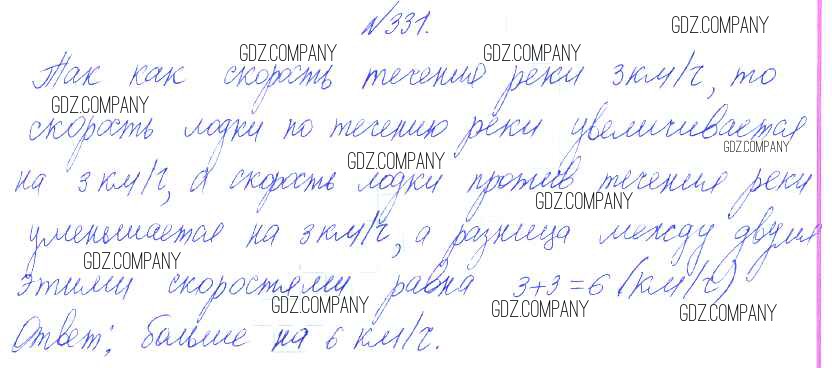 №331.
GDZ.COMPANY
GDZ.COMPANY GDZ.COMPANY
Так как скорость течения реки 3км/ч, то
GDZ.COMPANY
скорость лодки по течению реки увеличивается
GDZ.COMPANY
GDZ.COMPANY
на 3км/ч, а скорость лодки против течения реки
GDZ.COMPANY
уменьшается на 3км/ч, а разница между двумя
GDZ.COMPANY
этими скоростями равна 3+3=6 (км/ч)
GDZ.COMPANY GDZ.COMPANY GDZ.COMPANY
Ответ: больше на 6 км/ч.